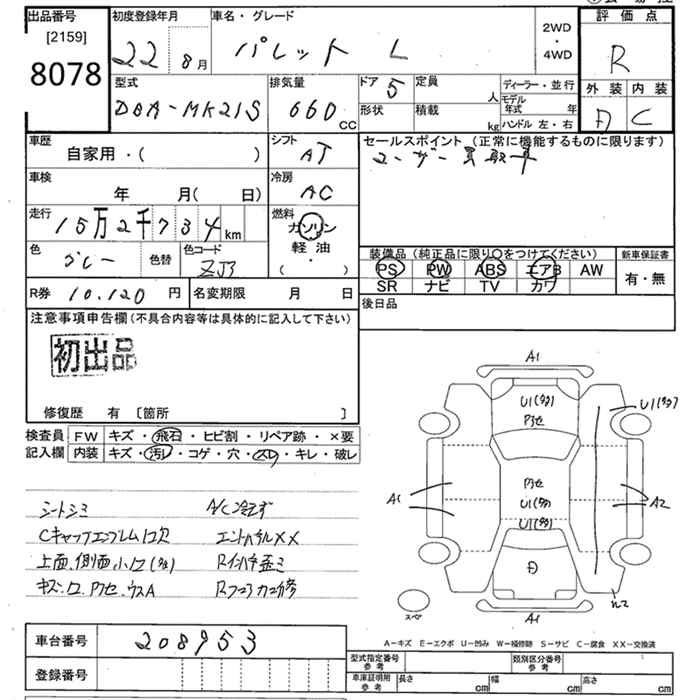 出品番号
[2159]
8078
初度登録年月
22 8月
車名・グレード
パレット L
2WD
・
4WD
評価点
R
外装 内装
A C
型式
DBA-MK21S
排気量
660 CC
ドア 5
形状
定員 人
積載 kg
ディーラー・並行
モデル年式 年
ハンドル 左・右
車歴
自家用・( )
シフト
AT
セールスポイント (正常に機能するものに限ります)
ユーザー買取車
車検
年 月( 日)
冷房
AC
走行
15万2千734 km
燃料
ガソリン
軽油
( ・ )
色
グレー
色替
色コード
ZJ3
装備品 (純正品に限り○をつけてください)
PS PW ABS エアB AW
SR ナビ TV カワ
新車保証書
有・無
R券 10,120 円
名変期限 月 日
後日品
注意事項申告欄 (不具合内容等は具体的に記入して下さい)
初出品
修復歴 有 [箇所 ]
検査員
記入欄
FW キズ・飛石・ヒビ割・リペア跡・×要
内装 キズ・汚レ・コゲ・穴・スレ・キレ・破レ
シートシミ
A/C冷えず
Cキャップエンブレム欠
エンドパネルXX
上面、側面、小
Rインパネ歪ミ
キズ・
A1
U1(多)
U1(多)
U1(多)
U1(多)
A1
A2
A1
スペア
A-キズ E-エクボ U-凹み W-補修跡 S-サビ C-腐食 XX-交換済
車台番号
208953
登録番号
型式指定番号
参考
類別区分番号
参考
車庫証明用
参考
長さ cm
幅 cm
高さ cm